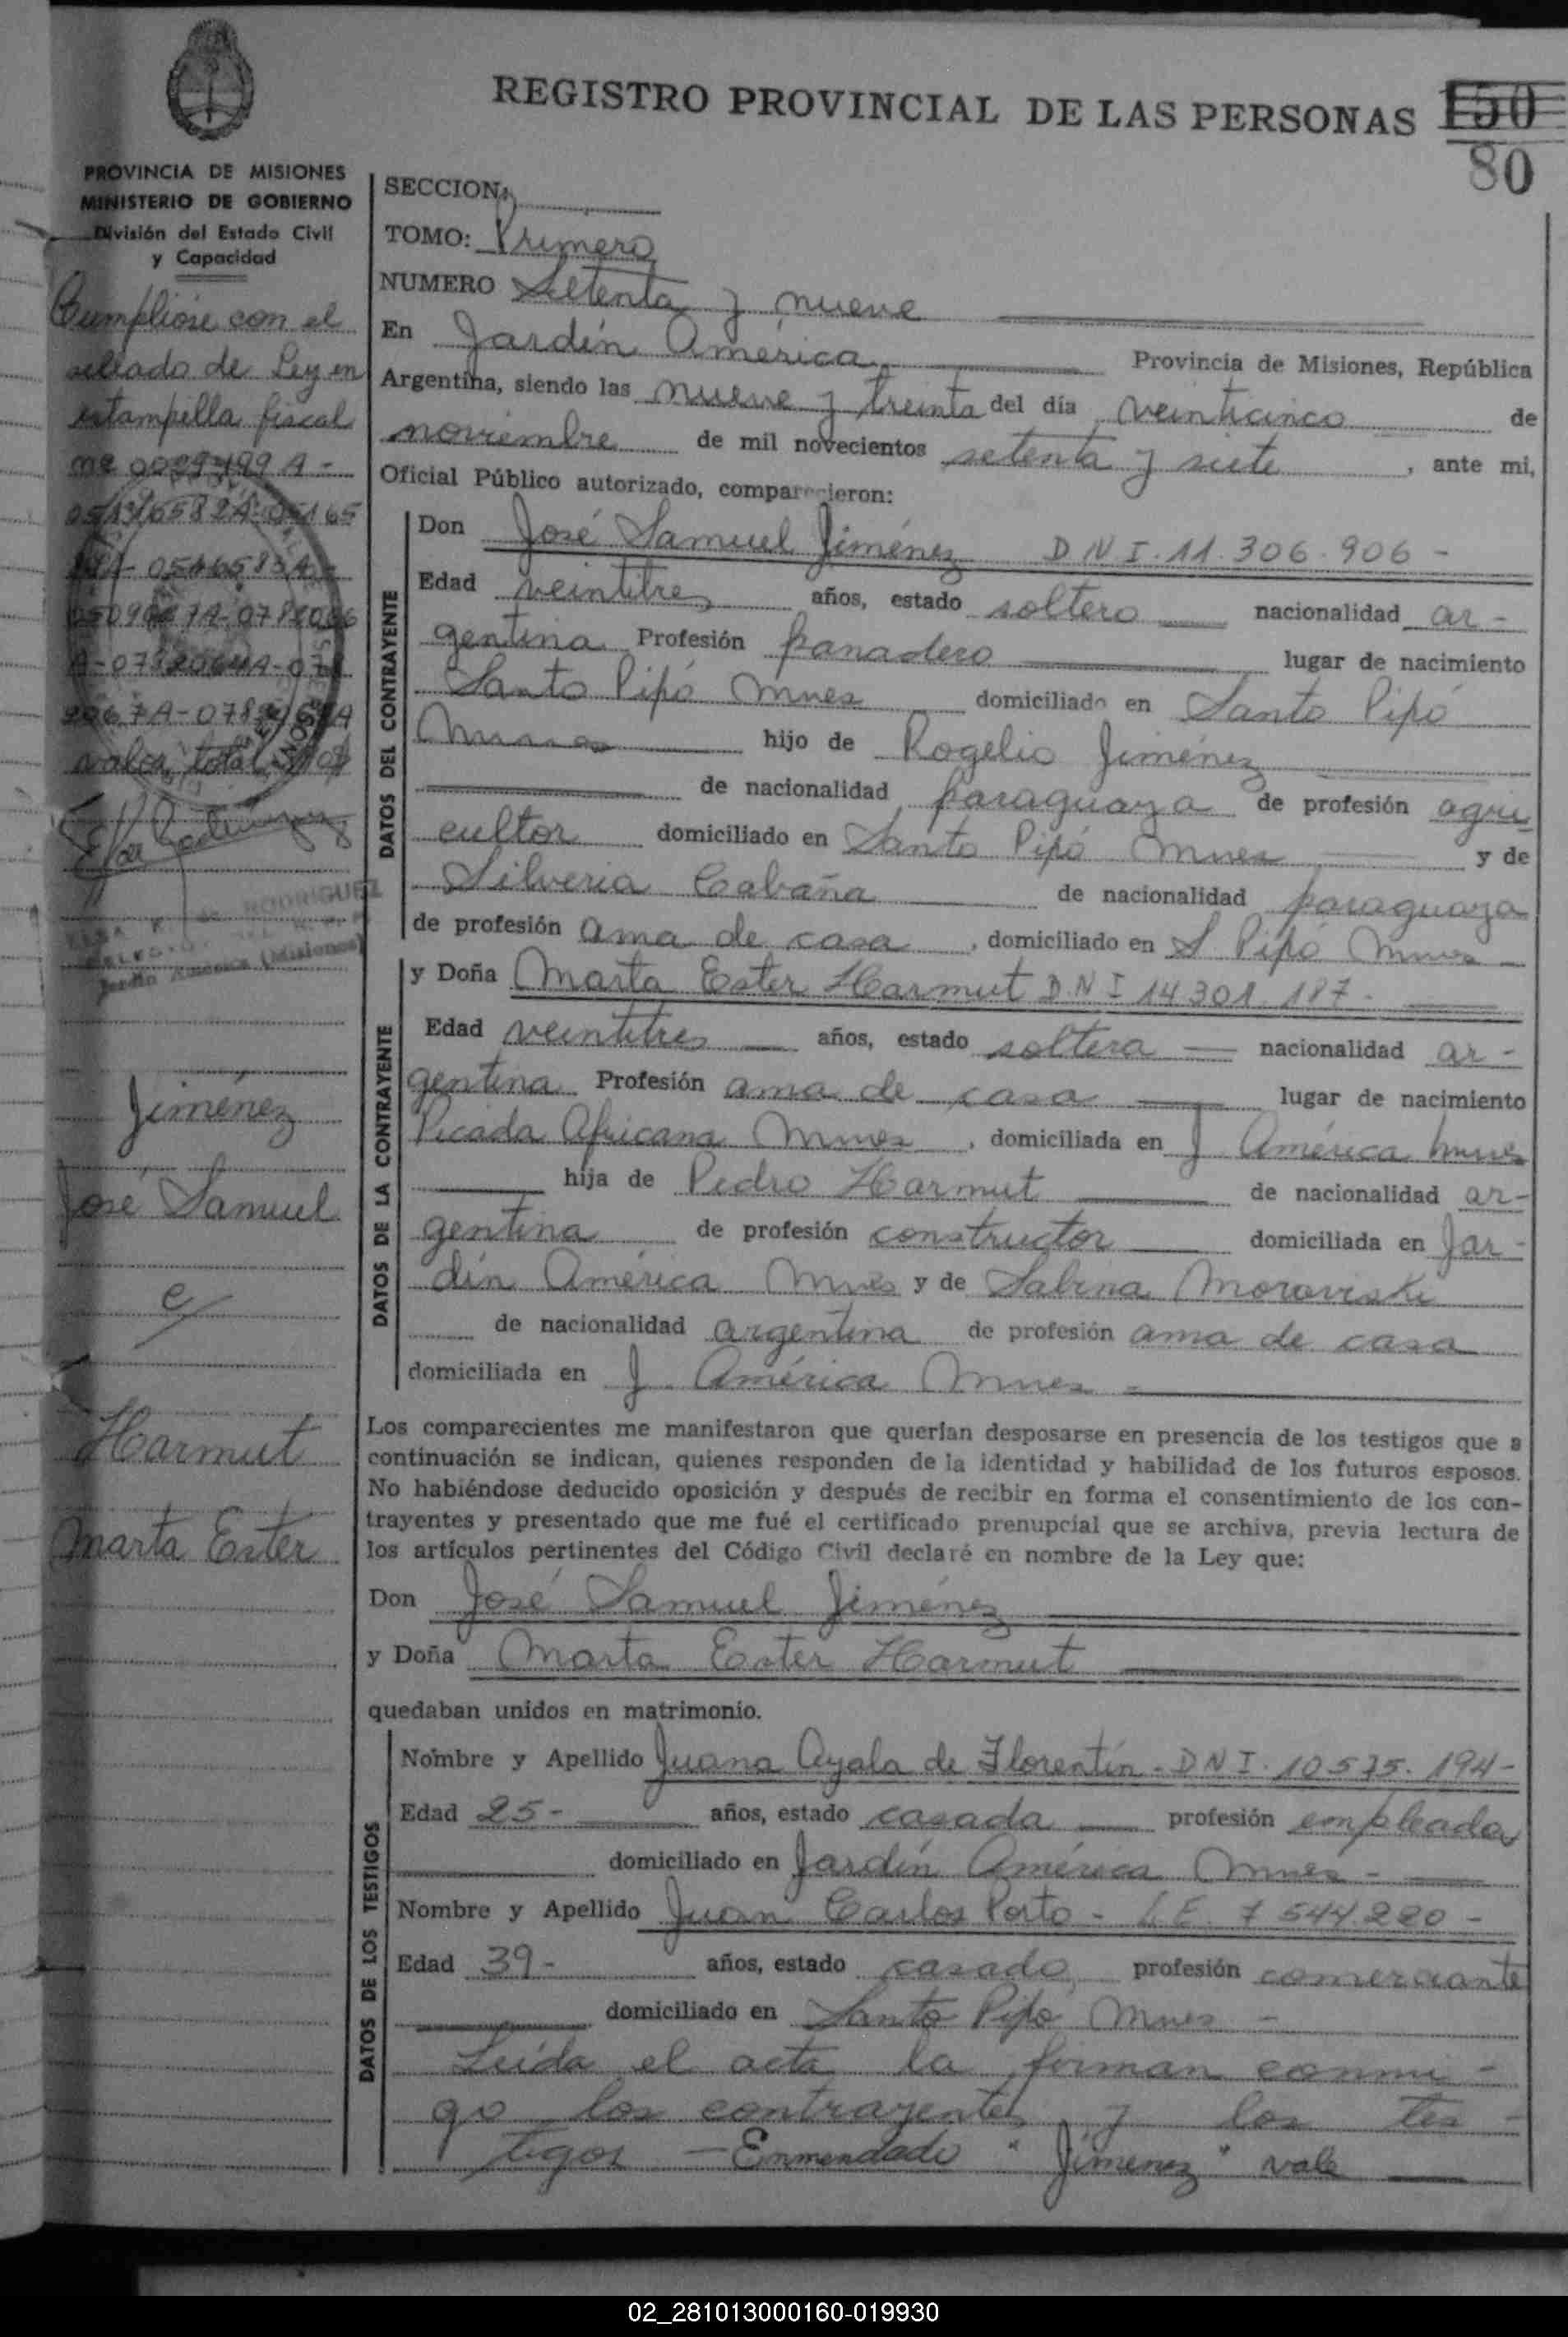 REGISTRO PROVINCIAL DE LAS PERSONAS 150
80
PROVINCIA DE MISIONES
MINISTERIO DE GOBIERNO
División del Estado Civil
y Capacidad
Cumplióse con el
sellado de Ley en
estampilla fiscal
valor total
RODRIGUEZ
Jardín América (Misiones)
Jiménez
José Samuel
c/
Harmut
Marta Ester
SECCION:
TOMO: Primero
NUMERO Setenta y nueve
En Jardín América Provincia de Misiones, República
Argentina, siendo las nueve y treinta del día veinticinco de
noviembre de mil novecientos setenta y siete, ante mi,
Oficial Público autorizado, comparecieron:
DATOS DEL CONTRAYENTE
Don José Samuel Jiménez D N I. 11.306.906 -
Edad veintitres años, estado soltero nacionalidad ar-
gentina Profesión panadero lugar de nacimiento
Santo Pipó Mnes domiciliado en Santo Pipó
Mnes hijo de Rogelio Jiménez
de nacionalidad paraguaya de profesión agri
cultor domiciliado en Santo Pipó Mnes y de
Silveria Cabaña de nacionalidad paraguaya
de profesión ama de casa, domiciliado en S. Pipó Mnes -
DATOS DE LA CONTRAYENTE
y Doña Marta Ester Harmut D N I 14.301.187.
Edad veintitres años, estado soltera nacionalidad ar-
gentina Profesión ama de casa lugar de nacimiento
Picada Africana Mnes, domiciliada en J América Mnes
hija de Pedro Harmut de nacionalidad ar-
gentina de profesión constructor domiciliada en Jar-
dín América Mnes y de Sabina Moroviski
de nacionalidad argentina de profesión ama de casa
domiciliada en J. América Mnes -
Los comparecientes me manifestaron que querían desposarse en presencia de los testigos que a
continuación se indican, quienes responden de la identidad y habilidad de los futuros esposos.
No habiéndose deducido oposición y después de recibir en forma el consentimiento de los con-
trayentes y presentado que me fué el certificado prenupcial que se archiva, previa lectura de
los artículos pertinentes del Código Civil declaré en nombre de la Ley que:
Don José Samuel Jiménez
y Doña Marta Ester Harmut
quedaban unidos en matrimonio.
DATOS DE LOS TESTIGOS
Nombre y Apellido Juana Ayala de Florentín - D N I. 10.575.194-
Edad 25- años, estado casada profesión empleada
domiciliado en Jardín América Mnes -
Nombre y Apellido Juan Carlos Porto - L.E. 7.544.220 -
Edad 39- años, estado casado profesión comerciante
domiciliado en Santo Pipó Mnes -
Leida el acta la firman conmi-
go los contrayentes y los tes-
tigos - Enmendado "Jimenez" vale
02_281013000160-019930